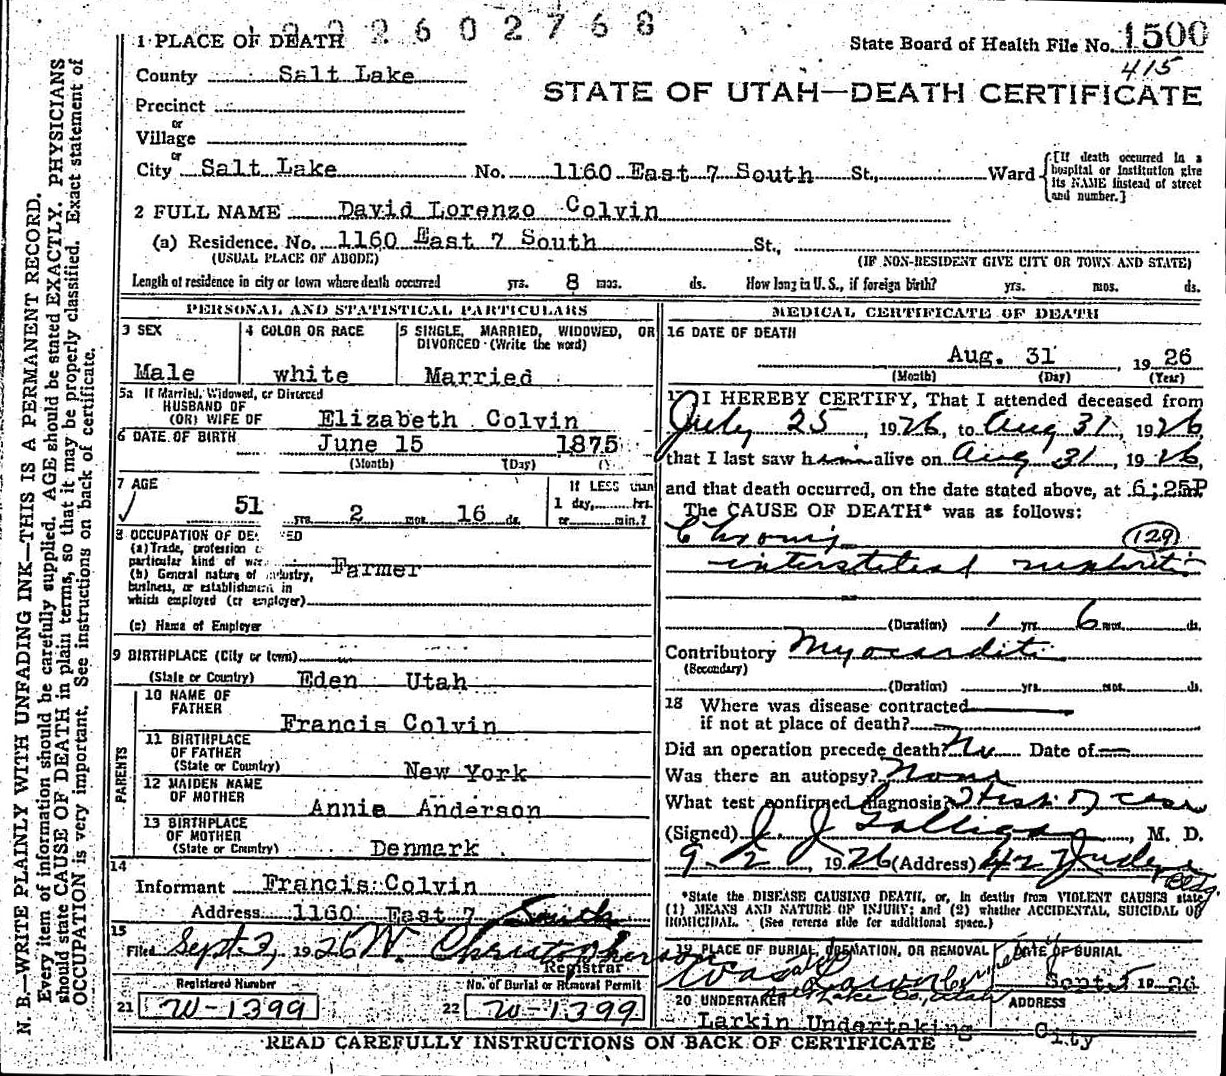 2602768
1 PLACE OF DEATH
State Board of Health File No. 1500
415
County Salt Lake
STATE OF UTAH—DEATH CERTIFICATE
Precinct
or
Village
or
City Salt Lake No. 1160 East 7 South St., Ward
[If death occurred in a hospital or institution give its NAME instead of street and number.]
2 FULL NAME David Lorenzo Colvin
(a) Residence. No. 1160 East 7 South St.,
(USUAL PLACE OF ABODE) (IF NON-RESIDENT GIVE CITY OR TOWN AND STATE)
Length of residence in city or town where death occurred yrs. 8 mos. ds. How long in U. S., if foreign birth? yrs. mos. ds.
PERSONAL AND STATISTICAL PARTICULARS
3 SEX Male
4 COLOR OR RACE white
5 SINGLE, MARRIED, WIDOWED, OR DIVORCED (Write the word) Married
5a If Married, Widowed, or Divorced
HUSBAND OF
(OR) WIFE OF Elizabeth Colvin
6 DATE OF BIRTH June 15 1875
(Month) (Day)
7 AGE
51 yrs. 2 mos. 16 ds.
If LESS than
1 day, hrs.
or min.?
8 OCCUPATION OF
(a) Trade, profession
particular kind of Farmer
(b) General nature of industry,
business, or establishment in
which employed (or employer)
(c) Name of Employer
9 BIRTHPLACE (City or town)
(State or Country) Eden Utah
PARENTS
10 NAME OF
FATHER Francis Colvin
11 BIRTHPLACE
OF FATHER
(State or Country) New York
12 MAIDEN NAME
OF MOTHER Annie Anderson
13 BIRTHPLACE
OF MOTHER
(State or Country) Denmark
14
Informant Francis Colvin
Address 1160 East 7 South
15
Filed Sept 2, 1926 W. Christopherson
Registrar
Registered Number
21 W-1399
No. of Burial or Removal Permit
22 W-1399
MEDICAL CERTIFICATE OF DEATH
16 DATE OF DEATH
Aug. 31 1926
(Month) (Day) (Year)
17 I HEREBY CERTIFY, That I attended deceased from
July 25, 1926, to Aug 31, 1926
that I last saw him alive on Aug 31, 1926,
and that death occurred, on the date stated above, at 6:25P
The CAUSE OF DEATH* was as follows:
Chronic (129)
interstitial nephritis
(Duration) 1 yrs. 6 mos. ds.
Contributory Myocarditis
(Secondary)
(Duration) yrs. mos. ds.
18 Where was disease contracted
if not at place of death?
Did an operation precede death? No Date of —
Was there an autopsy? None
What test confirmed diagnosis? Hist. of case
(Signed) J. J. Galligan, M. D.
9-2, 1926 (Address) 42 Judge Bldg.
*State the DISEASE CAUSING DEATH, or, in deaths from VIOLENT CAUSES state
(1) MEANS AND NATURE OF INJURY; and (2) whether ACCIDENTAL, SUICIDAL OR
HOMICIDAL. (See reverse side for additional space.)
19 PLACE OF BURIAL, CREMATION, OR REMOVAL
Wasatch Lawn
Salt Lake Co, Utah
DATE OF BURIAL
Sept. 5 1926
20 UNDERTAKER
Larkin Undertaking
ADDRESS
City
READ CAREFULLY INSTRUCTIONS ON BACK OF CERTIFICATE
N. B.—WRITE PLAINLY WITH UNFADING INK—THIS IS A PERMANENT RECORD.
Every item of information should be carefully supplied. AGE should be stated EXACTLY. PHYSICIANS
should state CAUSE OF DEATH in plain terms, so that it may be properly classified. Exact statement of
OCCUPATION is very important. See instructions on back of certificate.